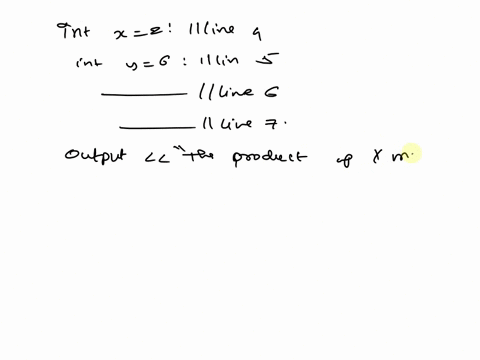 Int x=2: //line 4
int y=6: //lin 5
______ //line 6
______ // line 7.
Output << "the product of X m.